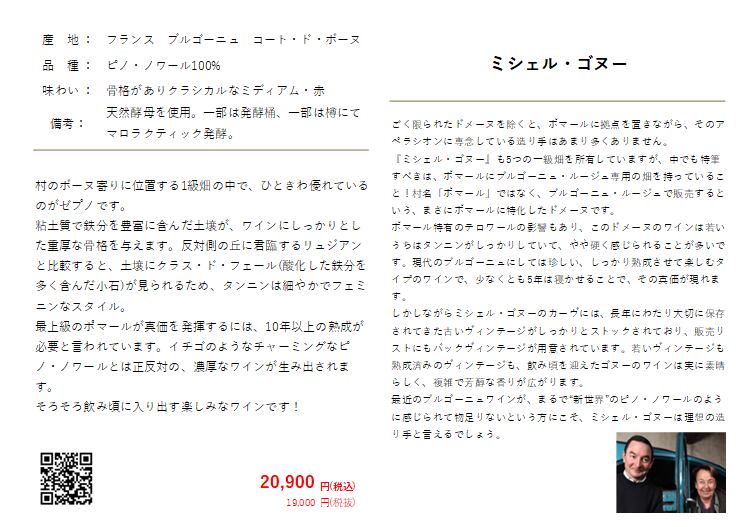 産　地： フランス　ブルゴーニュ　コート・ド・ボーヌ
品　種： ピノ・ノワール100%
味わい： 骨格がありクラシカルなミディアム・赤
備考： 天然酵母を使用。一部は発酵桶、一部は樽にて
マロラクティック発酵。
村のボーヌ寄りに位置する1級畑の中で、ひときわ優れている
のがゼプノです。
粘土質で鉄分を豊富に含んだ土壌が、ワインにしっかりとし
た重厚な骨格を与えます。反対側の丘に君臨するリュジアン
と比較すると、土壌にクラス・ド・フェール(酸化した鉄分を
多く含んだ小石)が見られるため、タンニンは細やかでフェミ
ニンなスタイル。
最上級のポマールが真価を発揮するには、10年以上の熟成が
必要と言われています。イチゴのようなチャーミングなピ
ノ・ノワールとは正反対の、濃厚なワインが生み出されま
す。
そろそろ飲み頃に入り出す楽しみなワインです！
20,900 円(税込)
19,000 円(税抜)
ミシェル・ゴヌー
ごく限られたドメーヌを除くと、ポマールに拠点を置きながら、そのア
ペラシオンに専念している造り手はあまり多くありません。
『ミシェル・ゴヌー』も5つの一級畑を所有していますが、中でも特筆
すべきは、ポマールにブルゴーニュ・ルージュ専用の畑を持っているこ
と！村名「ポマール」ではなく、ブルゴーニュ・ルージュで販売すると
いう、まさにポマールに特化したドメーヌです。
ポマール特有のテロワールの影響もあり、このドメーヌのワインは若い
うちはタンニンがしっかりしていて、やや硬く感じられることが多いで
す。現代のブルゴーニュにしては珍しい、しっかり熟成させて楽しむタ
イプのワインで、少なくとも5年は寝かせることで、その真価が現れま
す。
しかしながらミシェル・ゴヌーのカーヴには、長年にわたり大切に保存
されてきた古いヴィンテージがしっかりとストックされており、販売リ
ストにもバックヴィンテージが用意されています。若いヴィンテージも
熟成済みのヴィンテージも、飲み頃を迎えたゴヌーのワインは実に素晴
らしく、複雑で芳醇な香りが広がります。
最近のブルゴーニュワインが、まるで“新世界”のピノ・ノワールのよう
に感じられて物足りないという方にこそ、ミシェル・ゴヌーは理想の造
り手と言えるでしょう。